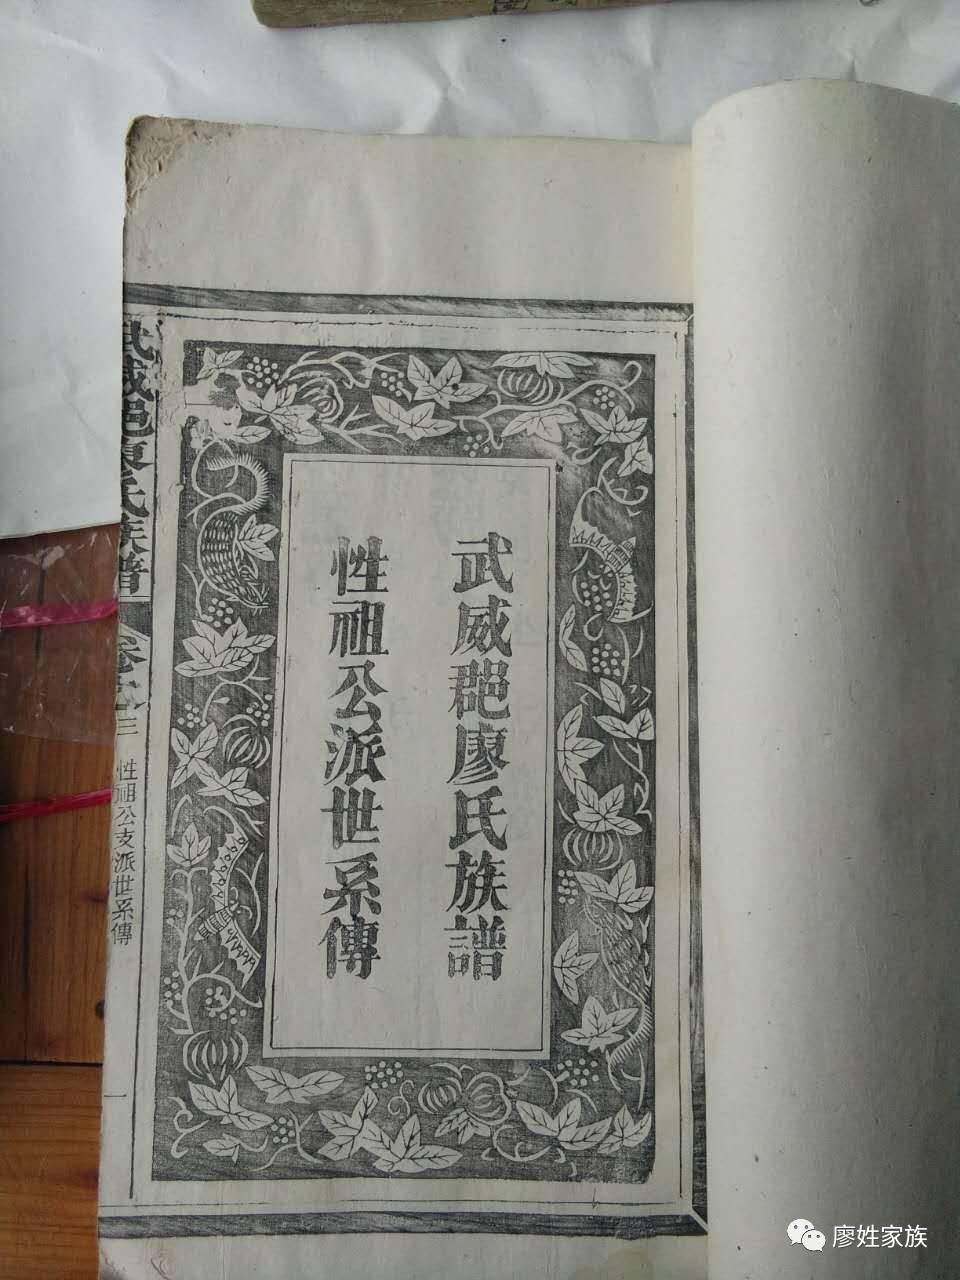 武威郡廖氏族譜
性祖公派世系傳
武威郡廖氏族譜
卷之三
性祖公支派世系傳
一
廖姓家族